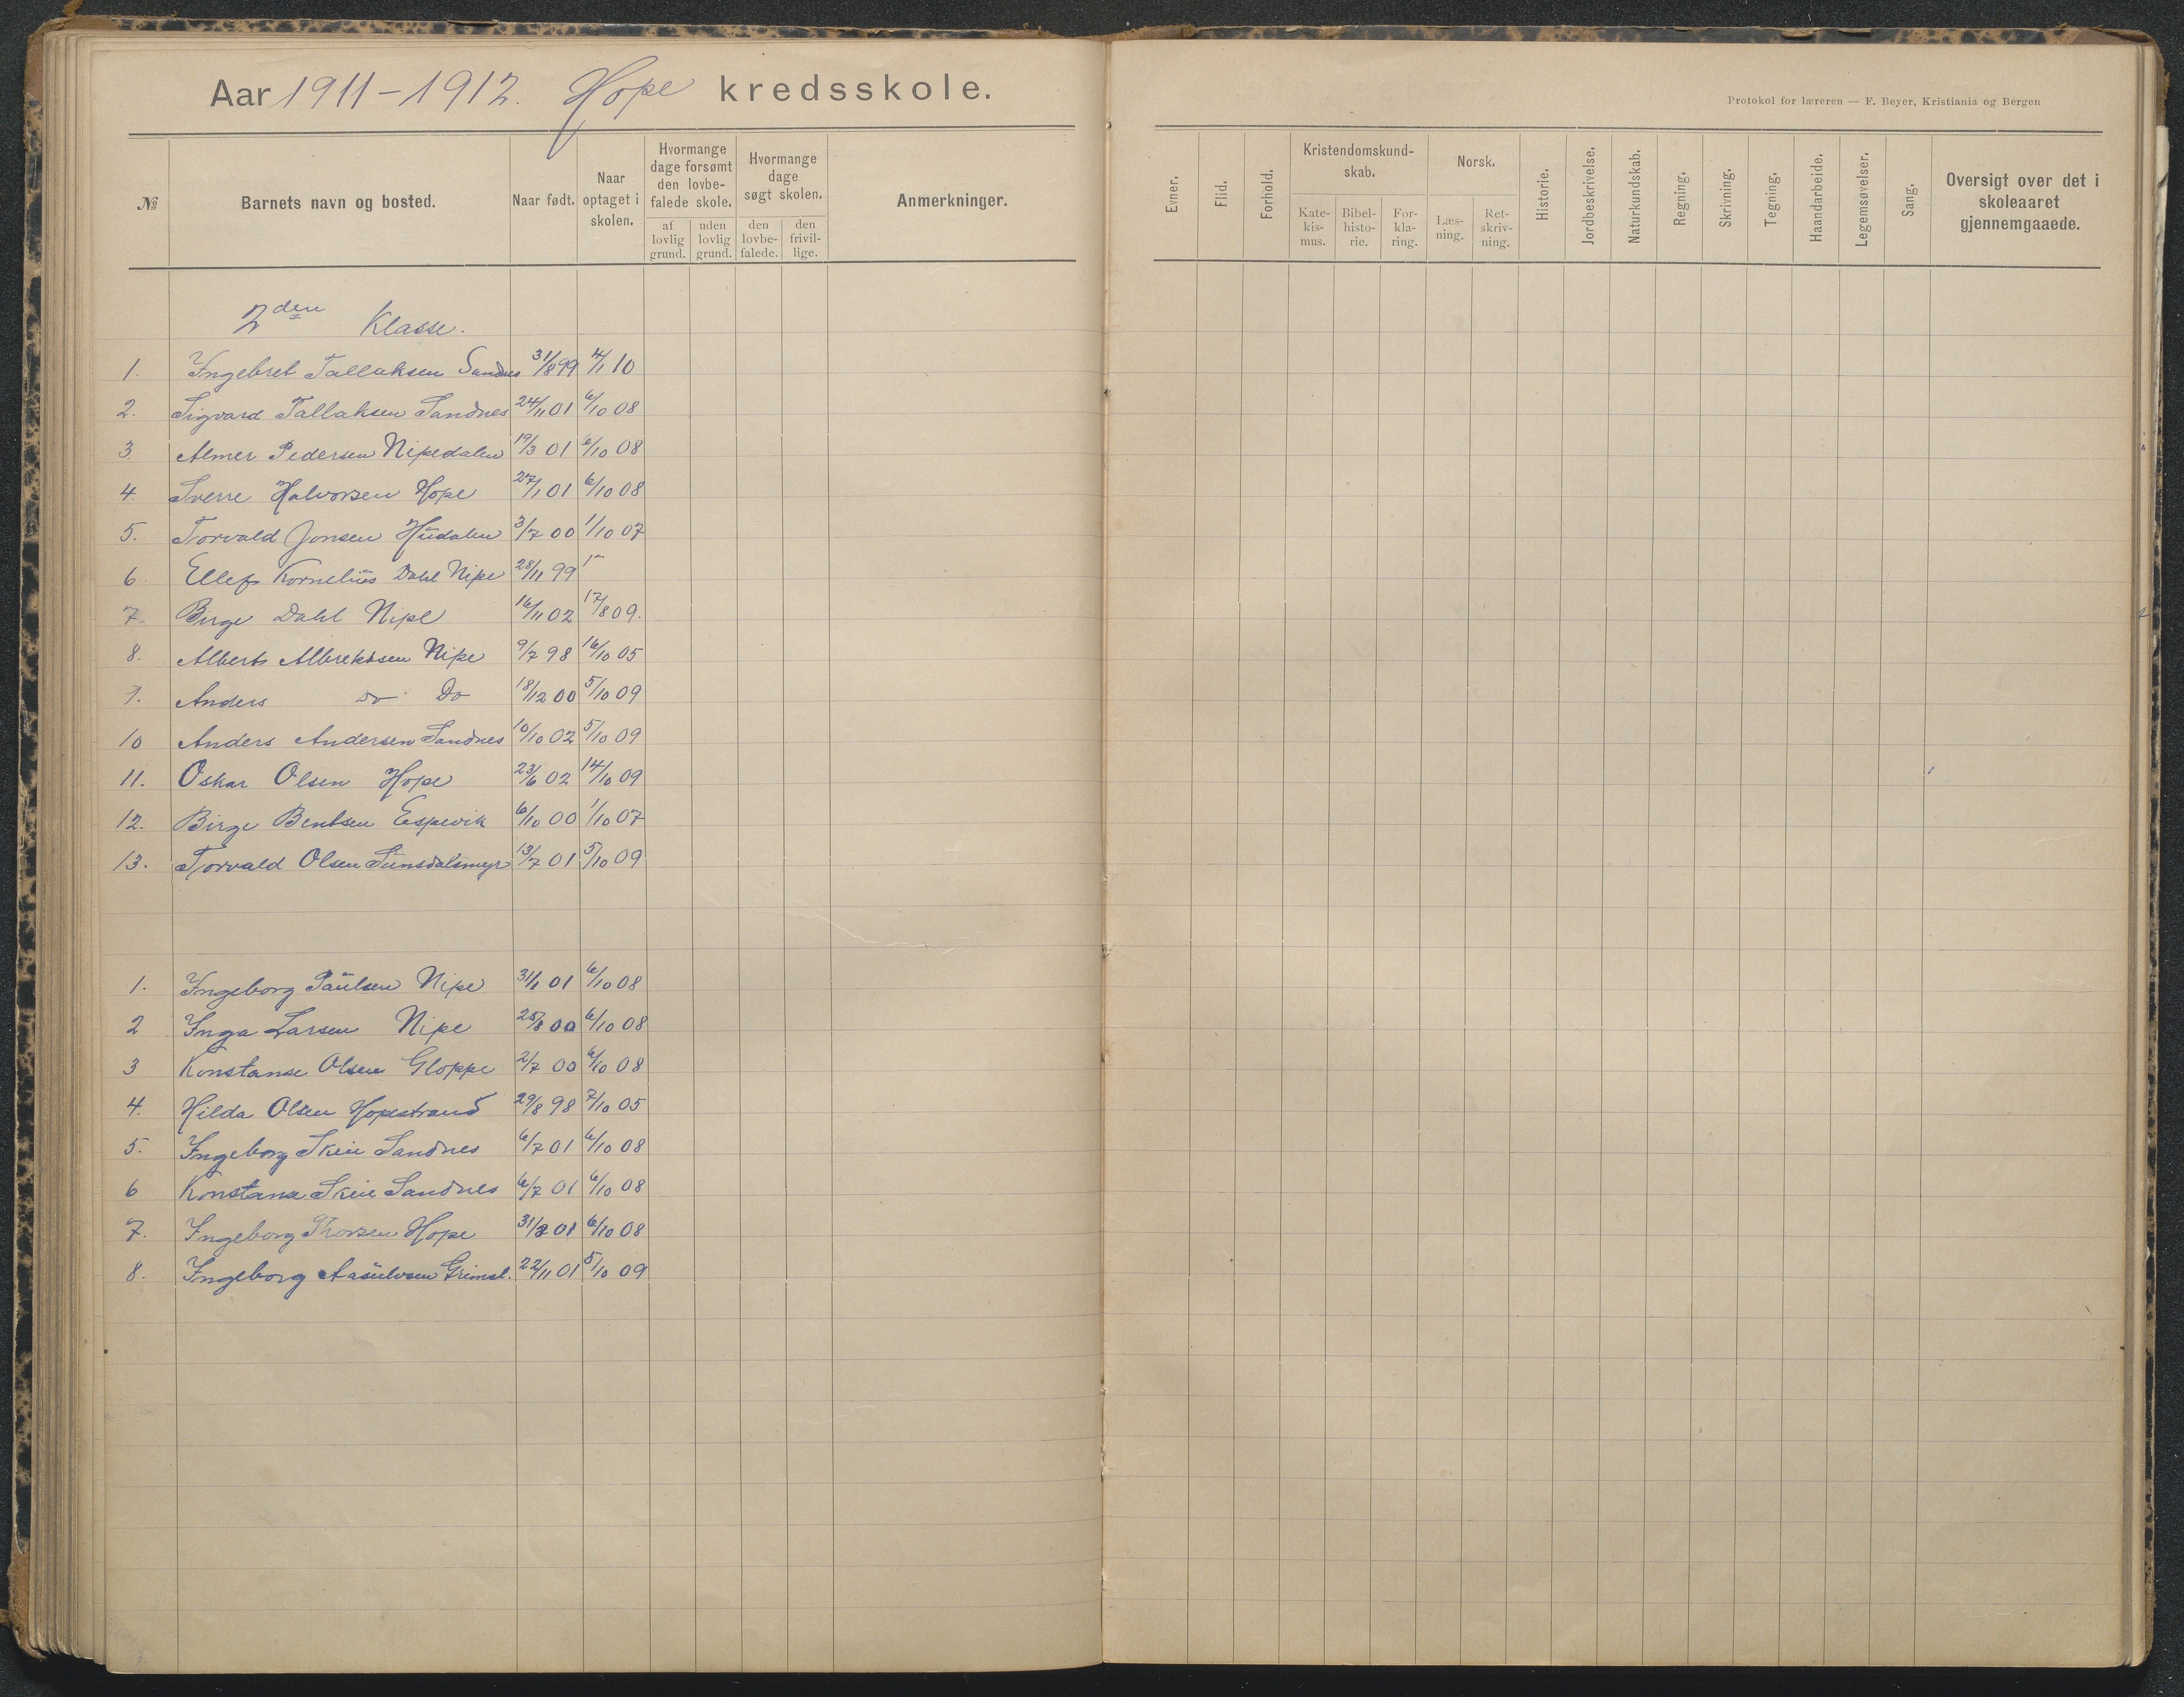 Aar 1911-1912. Hope kredsskole.
Protokol for læreren — F. Beyer, Kristiania og Bergen
№ Barnets navn og bosted. Naar født. Naar optaget i skolen. Hvormange dage forsømt den lovbefalede skole. af lovlig grund. uden lovlig grund. Hvormange dage søgt skolen. den lovbefalede. den frivillige. Anmerkninger.
Evner. Flid. Forhold. Kristendomskundskab. Katekismus. Bibelhistorie. Forklaring. Norsk. Læsning. Retskrivning. Historie. Jordbeskrivelse. Naturkundskab. Regning. Skrivning. Tegning. Haandarbeide. Legemsøvelser. Sang. Oversigt over det i skoleaaret gjennemgaaede.
2den Klasse.
1. Ingebret Tallaksen Sandnes 31/8 99 4/1 10
2. Sigvard Tallaksen Sandnes 24/11 01 6/10 08
3. Almer Pedersen Nipedalen 19/3 01 6/10 08
4. Sverre Halvorsen Hope 27/1 01 6/10 08
5. Torvald Jonsen Hudalen 3/7 00 1/10 07
6. Ellef Kornelius Dahl Nipe 28/11 99
7. Birge Dahl Nipe 16/11 02 17/8 09.
8. Albert Albrektsen Nipe 9/7 98 16/10 05
9. Anders do Do 18/12 00 5/10 09
10 Anders Andersen Sandnes 10/10 02 5/10 09
11. Oskar Olsen Hope 23/6 02 14/10 09
12. Birge Bentsen Espevik 6/10 00 1/10 07
13. Torvald Olsen Sunsdalsmyr 13/7 01 5/10 09
1. Ingeborg Paulsen Nipe 31/1 01 6/10 08
2 Inga Larsen Nipe 25/8 00 6/10 08
3 Konstanse Olsen Gloppe 2/7 00 6/10 08
4. Hilda Olsen Hopestrand 29/8 98 7/10 05
5. Ingeborg Skeie Sandnes 6/7 01 6/10 08
6 Konstanse Skeie Sandnes 6/7 01 6/10 08
7. Ingeborg Thorsen Hope 31/3 01 6/10 08
8. Ingeborg Aasulvsen Grimsl. 22/11 01 5/10 09